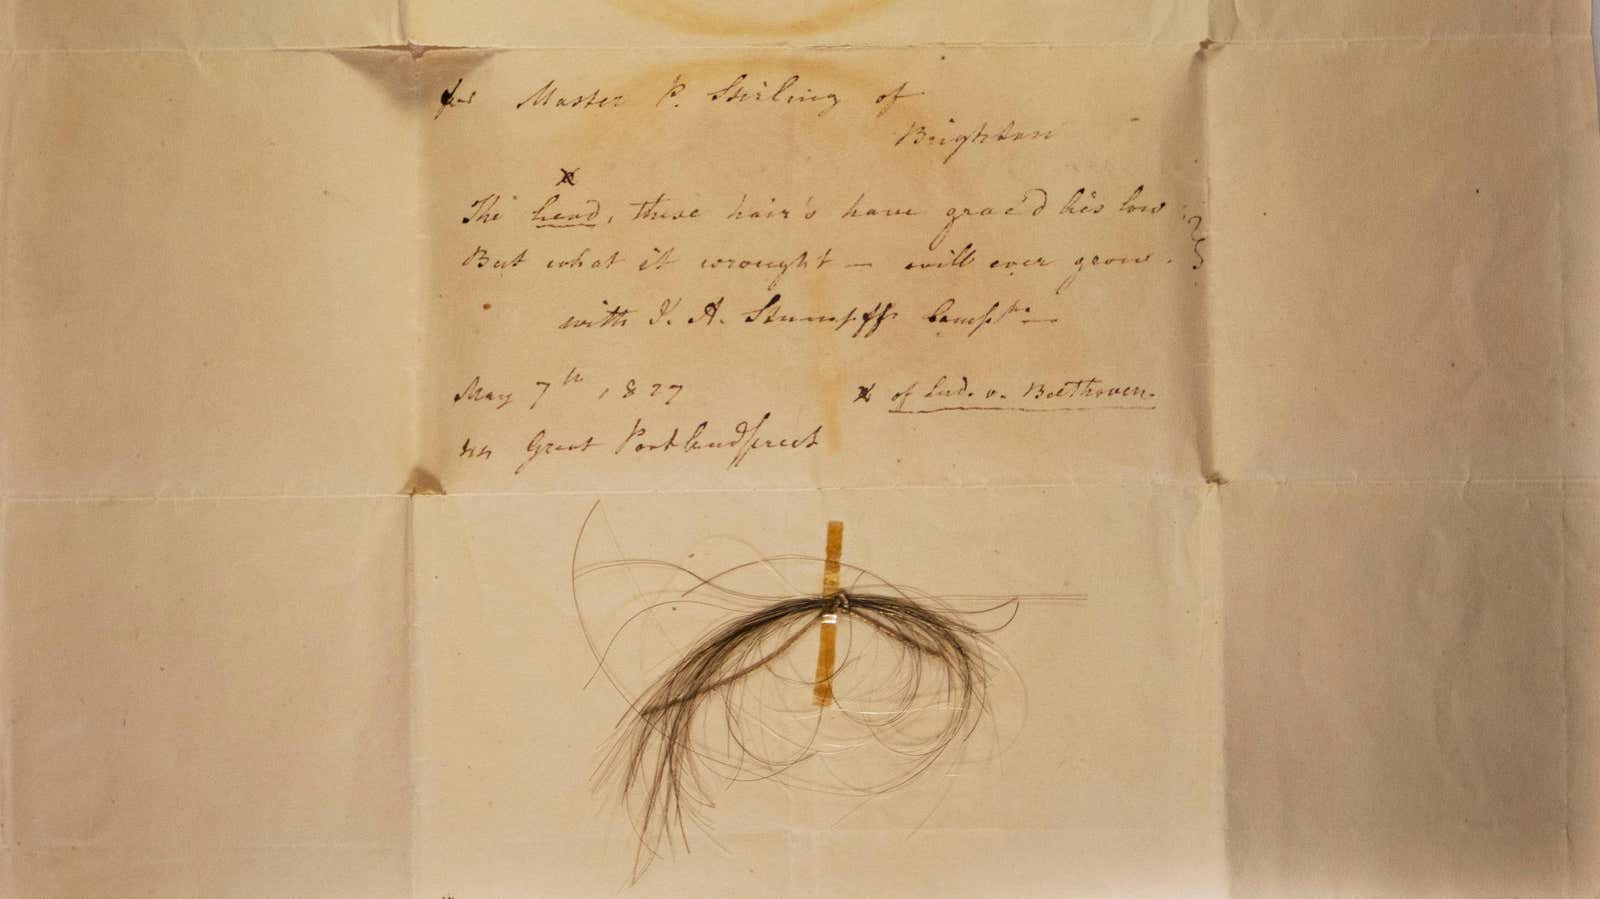 for Master P. Stirling of
Brighton
x
The head, these hair's have grac'd lies low
But what it wrought — will ever grow.
with J. A. Stumpff Compts—
May 7th, 1827
x of Lud. v. Beethoven.
44 Great Portlandstreet